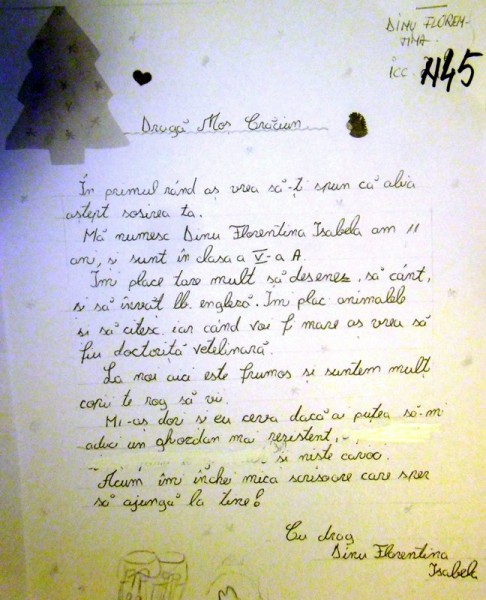 DINU FLOREN-
TINA.
ICC. 1145
Dragă Moș Crăciun
În primul rând aș vrea să-ți spun că abia
aștept sosirea ta.
Mă numesc Dinu Florentina Isabela am 11
ani, și sunt în clasa a V-a A.
Îmi place tare mult să desenez, să cânt,
și să învăț lb. engleză. Îmi plac animalele
și să citesc iar când voi fi mare aș vrea să
fiu doctoriță vetelinară.
La noi aici este frumos și suntem mulți
copii te rog să vii.
Mi-aș dori și eu ceva dacă ai putea să-mi
aduci un ghozdan mai rezistent,
și niște carioc.
Acum îmi închei mica scrisoare care sper
să ajungă la tine!
Cu drag
Dinu Florentina
Isabela